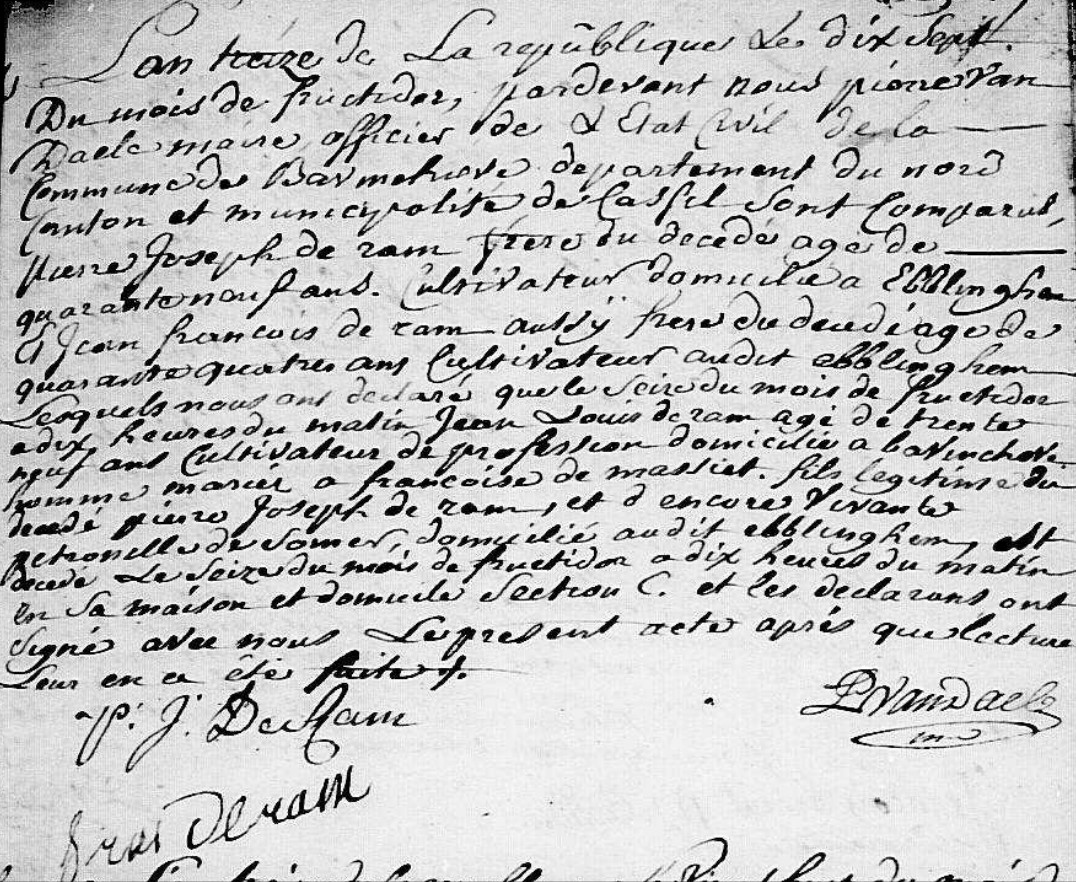 L'an treize de La republique Le dix Sept.
Du mois de fructidor, pardevant nous pierre Van
Daele maire officier de L Etat Civil de la
Commune de departement du nord
Canton et municipalité de Cassel Sont Comparus,
pierre Joseph de ram frere du decedé agé de
quarante neuf ans. Cultivateur domicilie a Ebblinghem
Et Jean francois de ram aussÿ frere du decedé age de
quarante quatre ans Cultivateur audit ebblinghem
Lesquels nous ont declaré que le Seize du mois de fructidor
a dix heures du matin Jean Louis de ram agé de trente
neuf ans Cultivateur de profession domicilié a bavinchove
homme mariér a francoise de massiet. fils legitime du
decedé piére Joseph de ram, et d encore Vivante
petronille de Somer, domicilié audit ebblinghem, est
decede Le Seize du mois de fructidor a dix heures du matin
en Sa maison et domicile Section C. et les declarans ont
Signé avec nous Le present acte après que lecture
Leur en a été faite
P. J. De Ram
PVandaele
fras Deram